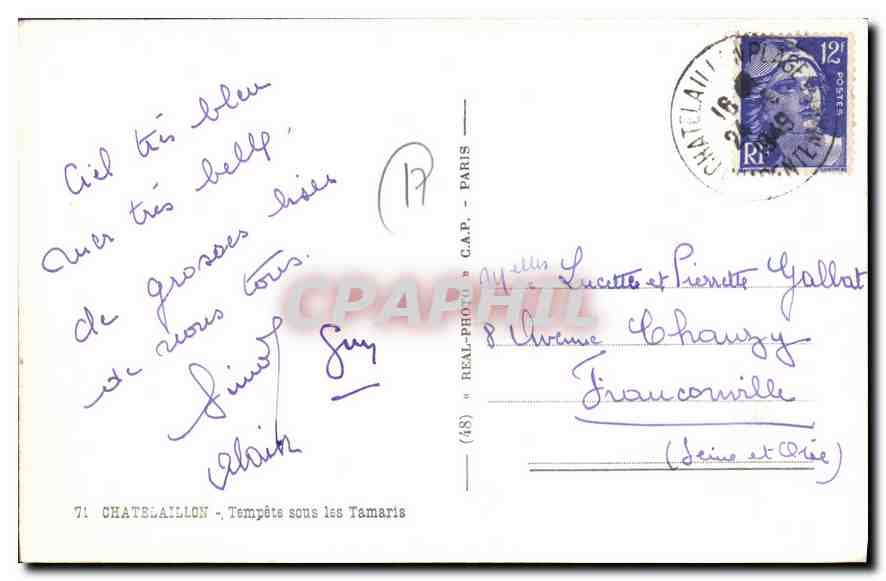 Ciel très bleu
mer très belle,
de grosses bises
de nous tous.
Guy
Alain
17
71 CHATELAILLON -, Tempête sous les Tamaris
(48) « REAL-PHOTO » C.A.P. - PARIS
CPAPHIL
CHATELAILLON PLAGE
18
1949
12F
POSTES
RF
Melles Lucette et Pierrette Galbat
8 Avenue Chanzy
Franconville
(Seine et Oise)